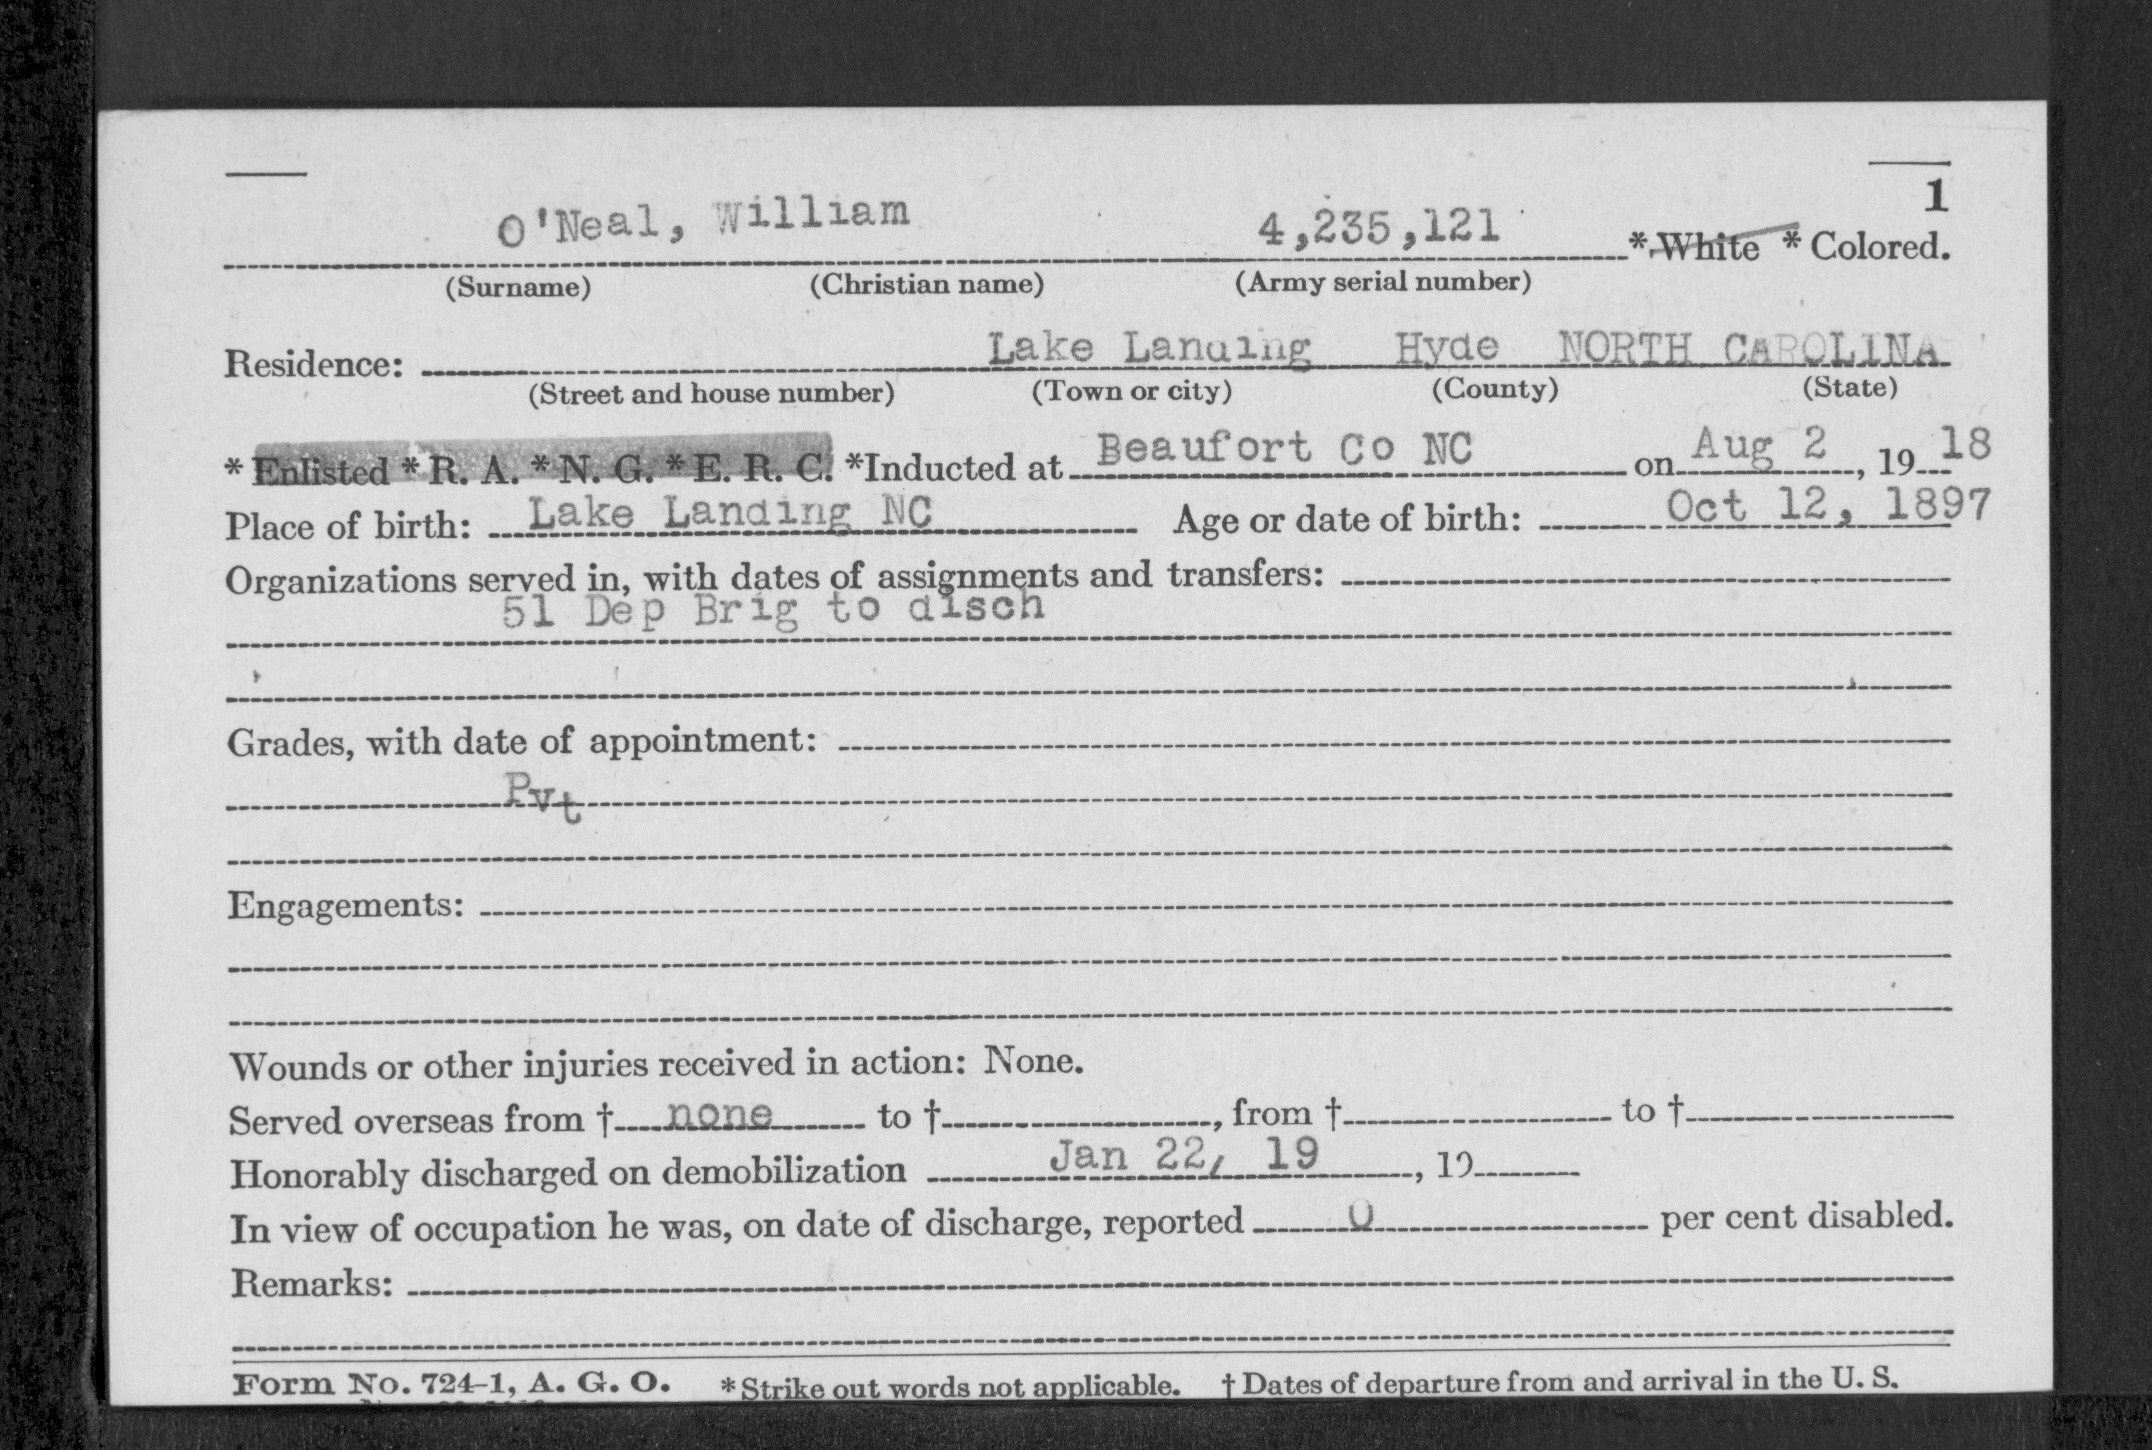 1
O'Neal, William 4,235,121 * White * Colored.
(Surname) (Christian name) (Army serial number)
Residence: Lake Landing Hyde NORTH CAROLINA
(Street and house number) (Town or city) (County) (State)
* Enlisted * R. A. * N. G. * E. R. C. *Inducted at Beaufort Co NC on Aug 2, 19 18
Place of birth: Lake Landing NC Age or date of birth: Oct 12, 1897
Organizations served in, with dates of assignments and transfers:
51 Dep Brig to disch
Grades, with date of appointment:
Pvt
Engagements:
Wounds or other injuries received in action: None.
Served overseas from † none to †, from † to †
Honorably discharged on demobilization Jan 22, 19, 19
In view of occupation he was, on date of discharge, reported 0 per cent disabled.
Remarks:
Form No. 724-1, A. G. O. * Strike out words not applicable. † Dates of departure from and arrival in the U. S.